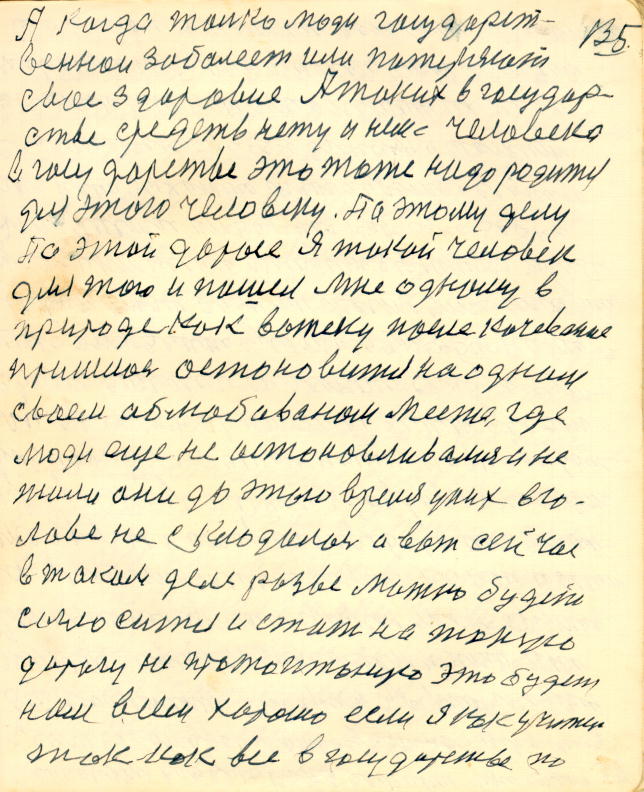 135.
А когда толко люди государст-
венной заболеет или потеряют
свое здоровие А таких в государ-
стве средств нету и нет человека
в государстве это тоже надо родится
для этого человеку. Па этому делу
Па этой дароге Я такой человек
для того и пошел мне одному в
природе как вотеку после кочевание
пришлось остоновится на одном
своем облюбаваном месте, где
люди еще не остоновливались и не
жили они до этого время у них в го-
лове не складолось а вот сей час
в таком деле разве можно будет
согласится и стат на такую
дарогу не протоптоную это будет
нам всем харошо если Я как учител
так как все в государстве по